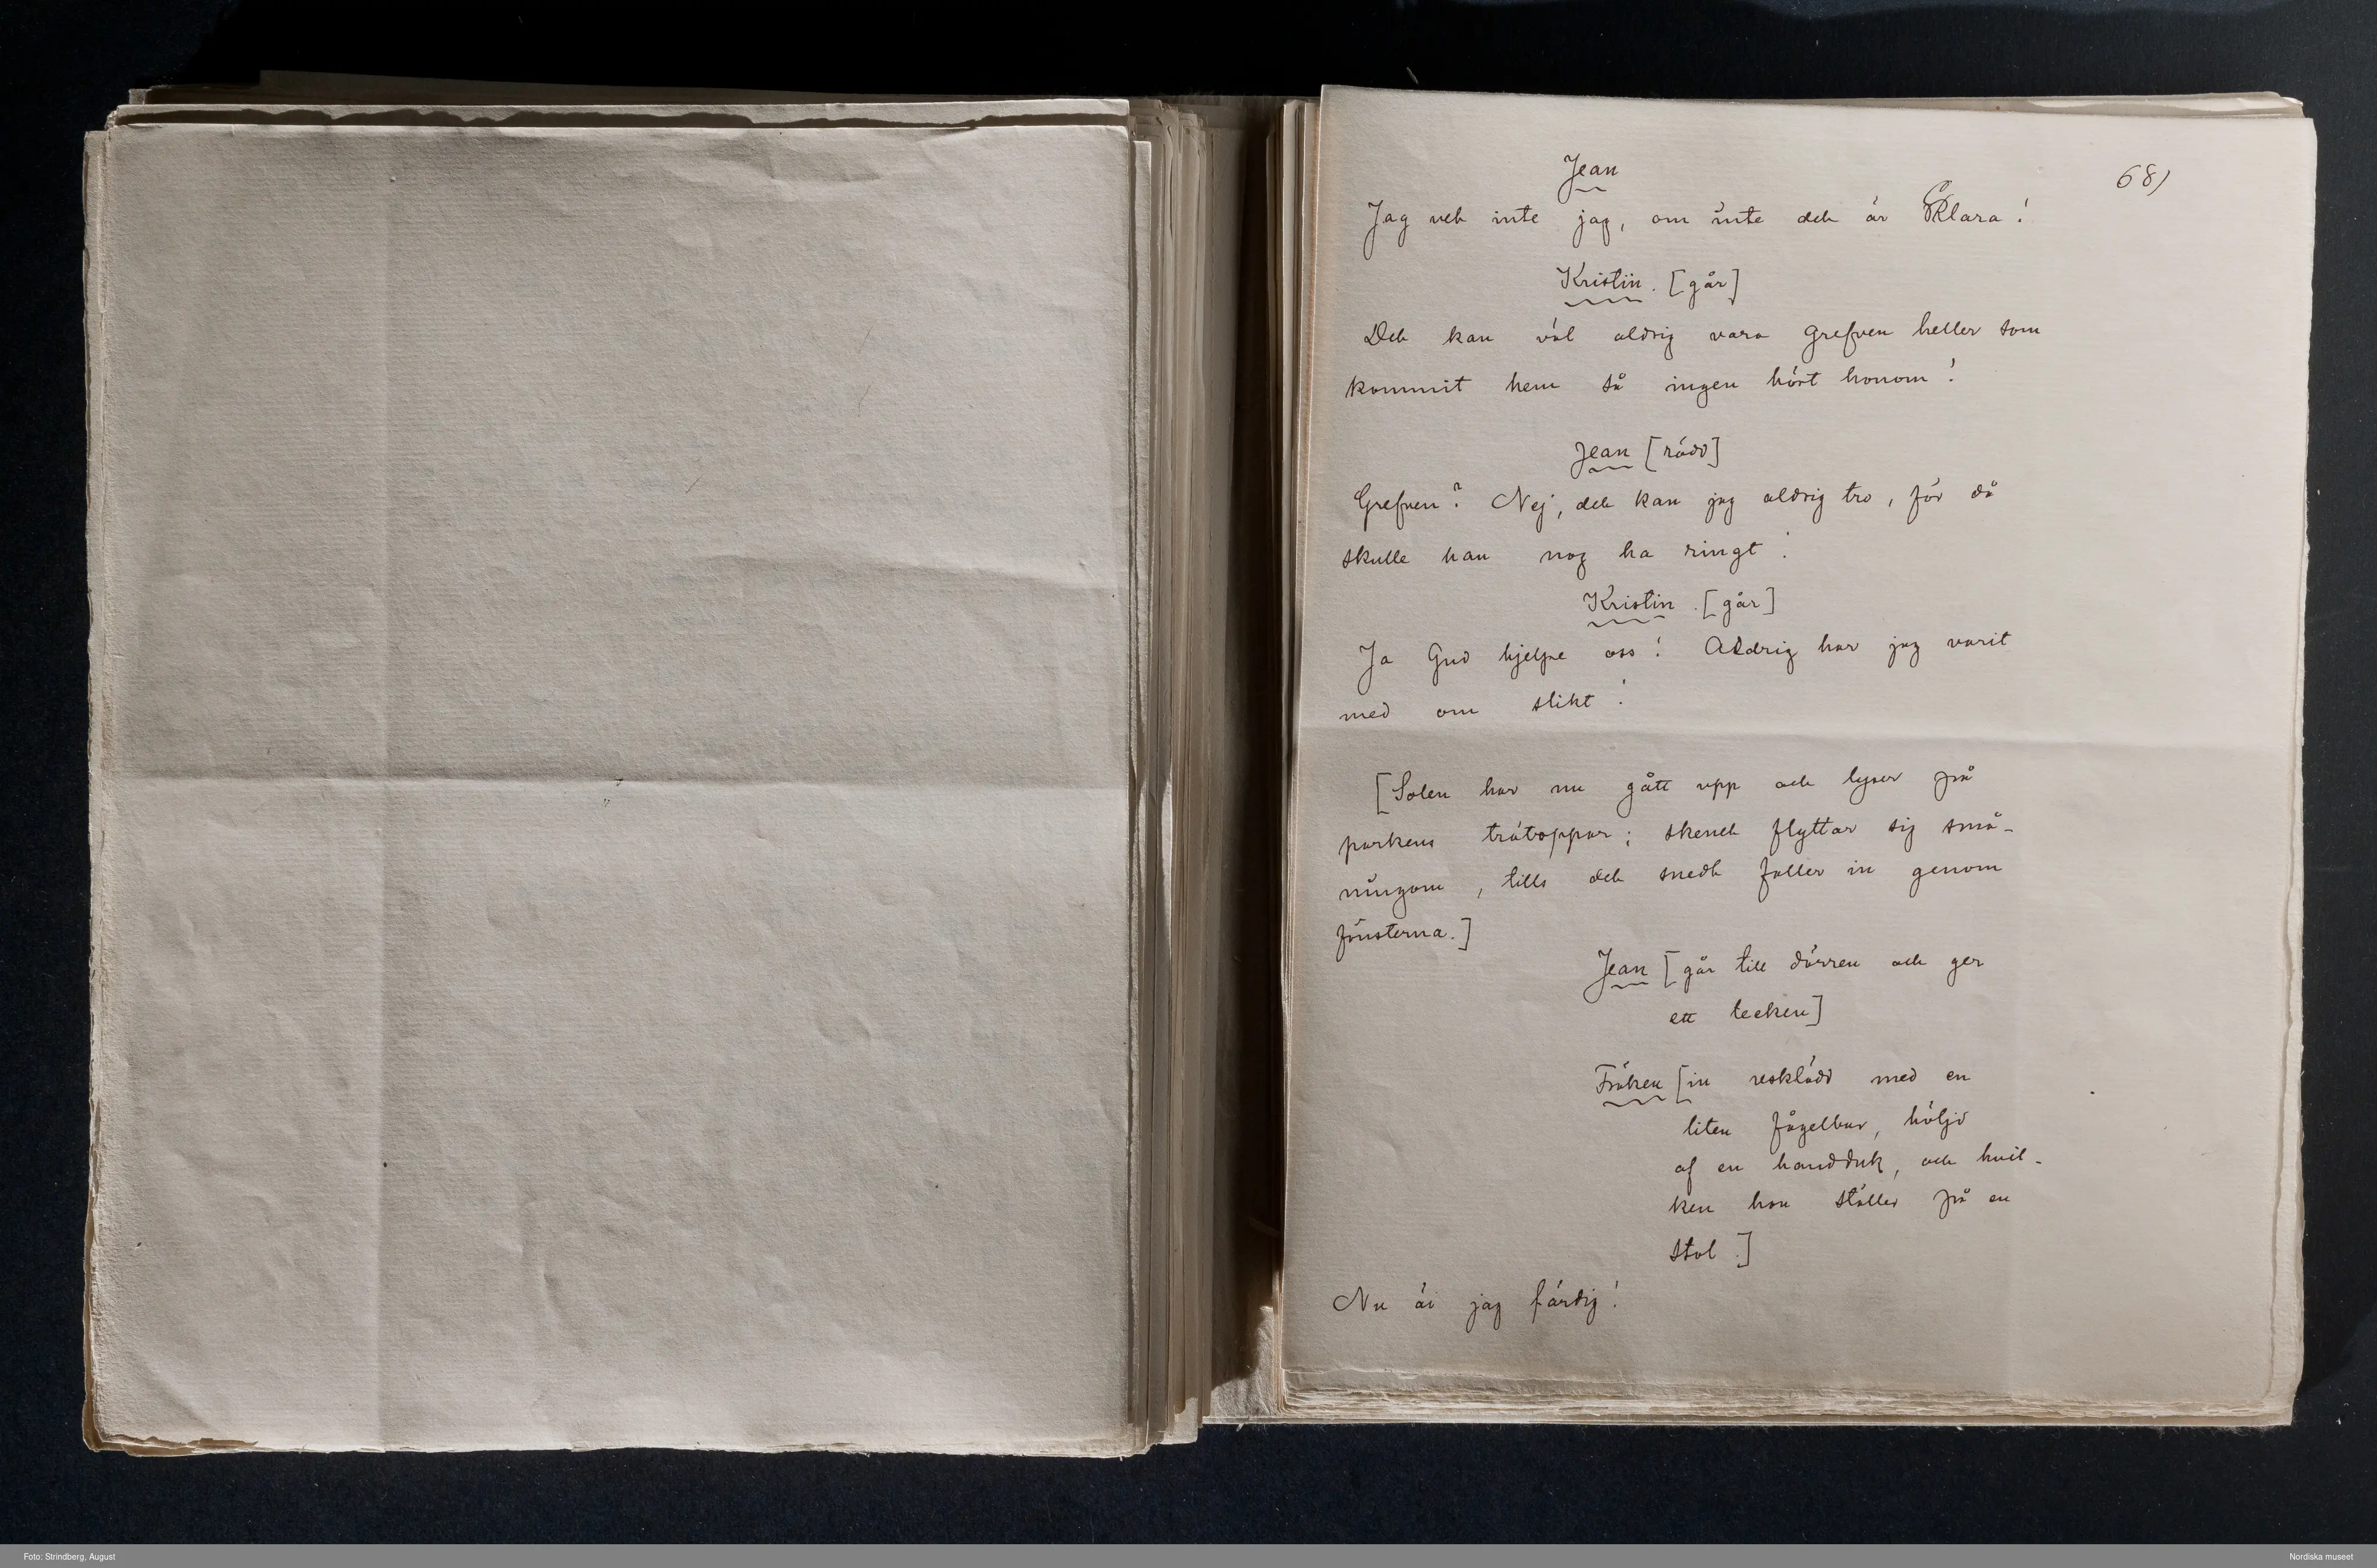 68)
Jean
Jag vet inte jag, om inte det är Klara!
Kristin. [går]
Det kan väl aldrig vara grefven heller som
kommit hem så ingen hört honom!
Jean [rädd]
Grefven? Nej, det kan jag aldrig tro, för då
skulle han nog ha ringt!
Kristin. [går]
Ja Gud hjelpe oss! Aldrig har jag varit
med om slikt!
[Solen har nu gått upp och lyser på
parkens trätoppar; skenet flyttar sig små-
ningom, tills det snedt faller in genom
fönsterna.]
Jean [går till dörren och ger
ett tecken]
Fröken [in resklädd med en
liten fågelbur, höljd
af en handduk, och hvil-
ken hon ställer på en
stol.]
Nu är jag färdig!
Foto: Strindberg, August
Nordiska museet